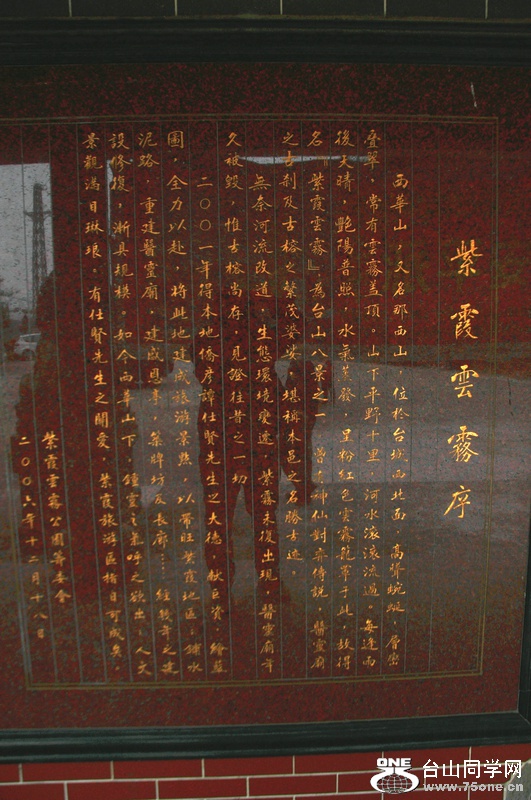 紫霞雲霧序
西華山，又名那西山，位於台城西北面，高聳蜿蜒，層巒
疊翠，常有雲霧蓋頂。山下平野十里，河水滾滾流過。每逢雨
後天晴，艷陽普照，水氣蒸發，呈粉紅色雲霧籠罩于此，故得
名『紫霞雲霧』為台山八景之一。曾有神仙對弈傳說，醫靈廟
之古剎及古榕之繁茂婆娑，堪稱本邑之名勝古迹。
無奈河流改道，生態環境變遷，紫霧未復出現，醫靈廟年
久被毀，惟古榕尚存，見證往昔之一切。
二〇〇一年得本地僑彥譚仕賢先生之大德，献巨資，繪藍
圖，全力以赴，將此地建成旅游景點，以帶旺紫霞地區；鋪水
泥路，重建醫靈廟，建成恩亭，築牌坊及長廊…經数年之建
設修復，漸具規模。如今西華山下，鍾靈之氣呼之欲出，人文
景觀滿目琳琅。有仕賢先生之關愛，紫霞旅游區指日可成矣。
紫霞雲霧公園籌委會
二〇〇六年十二月十八日
ONE
台山同学网
www.75one.cn